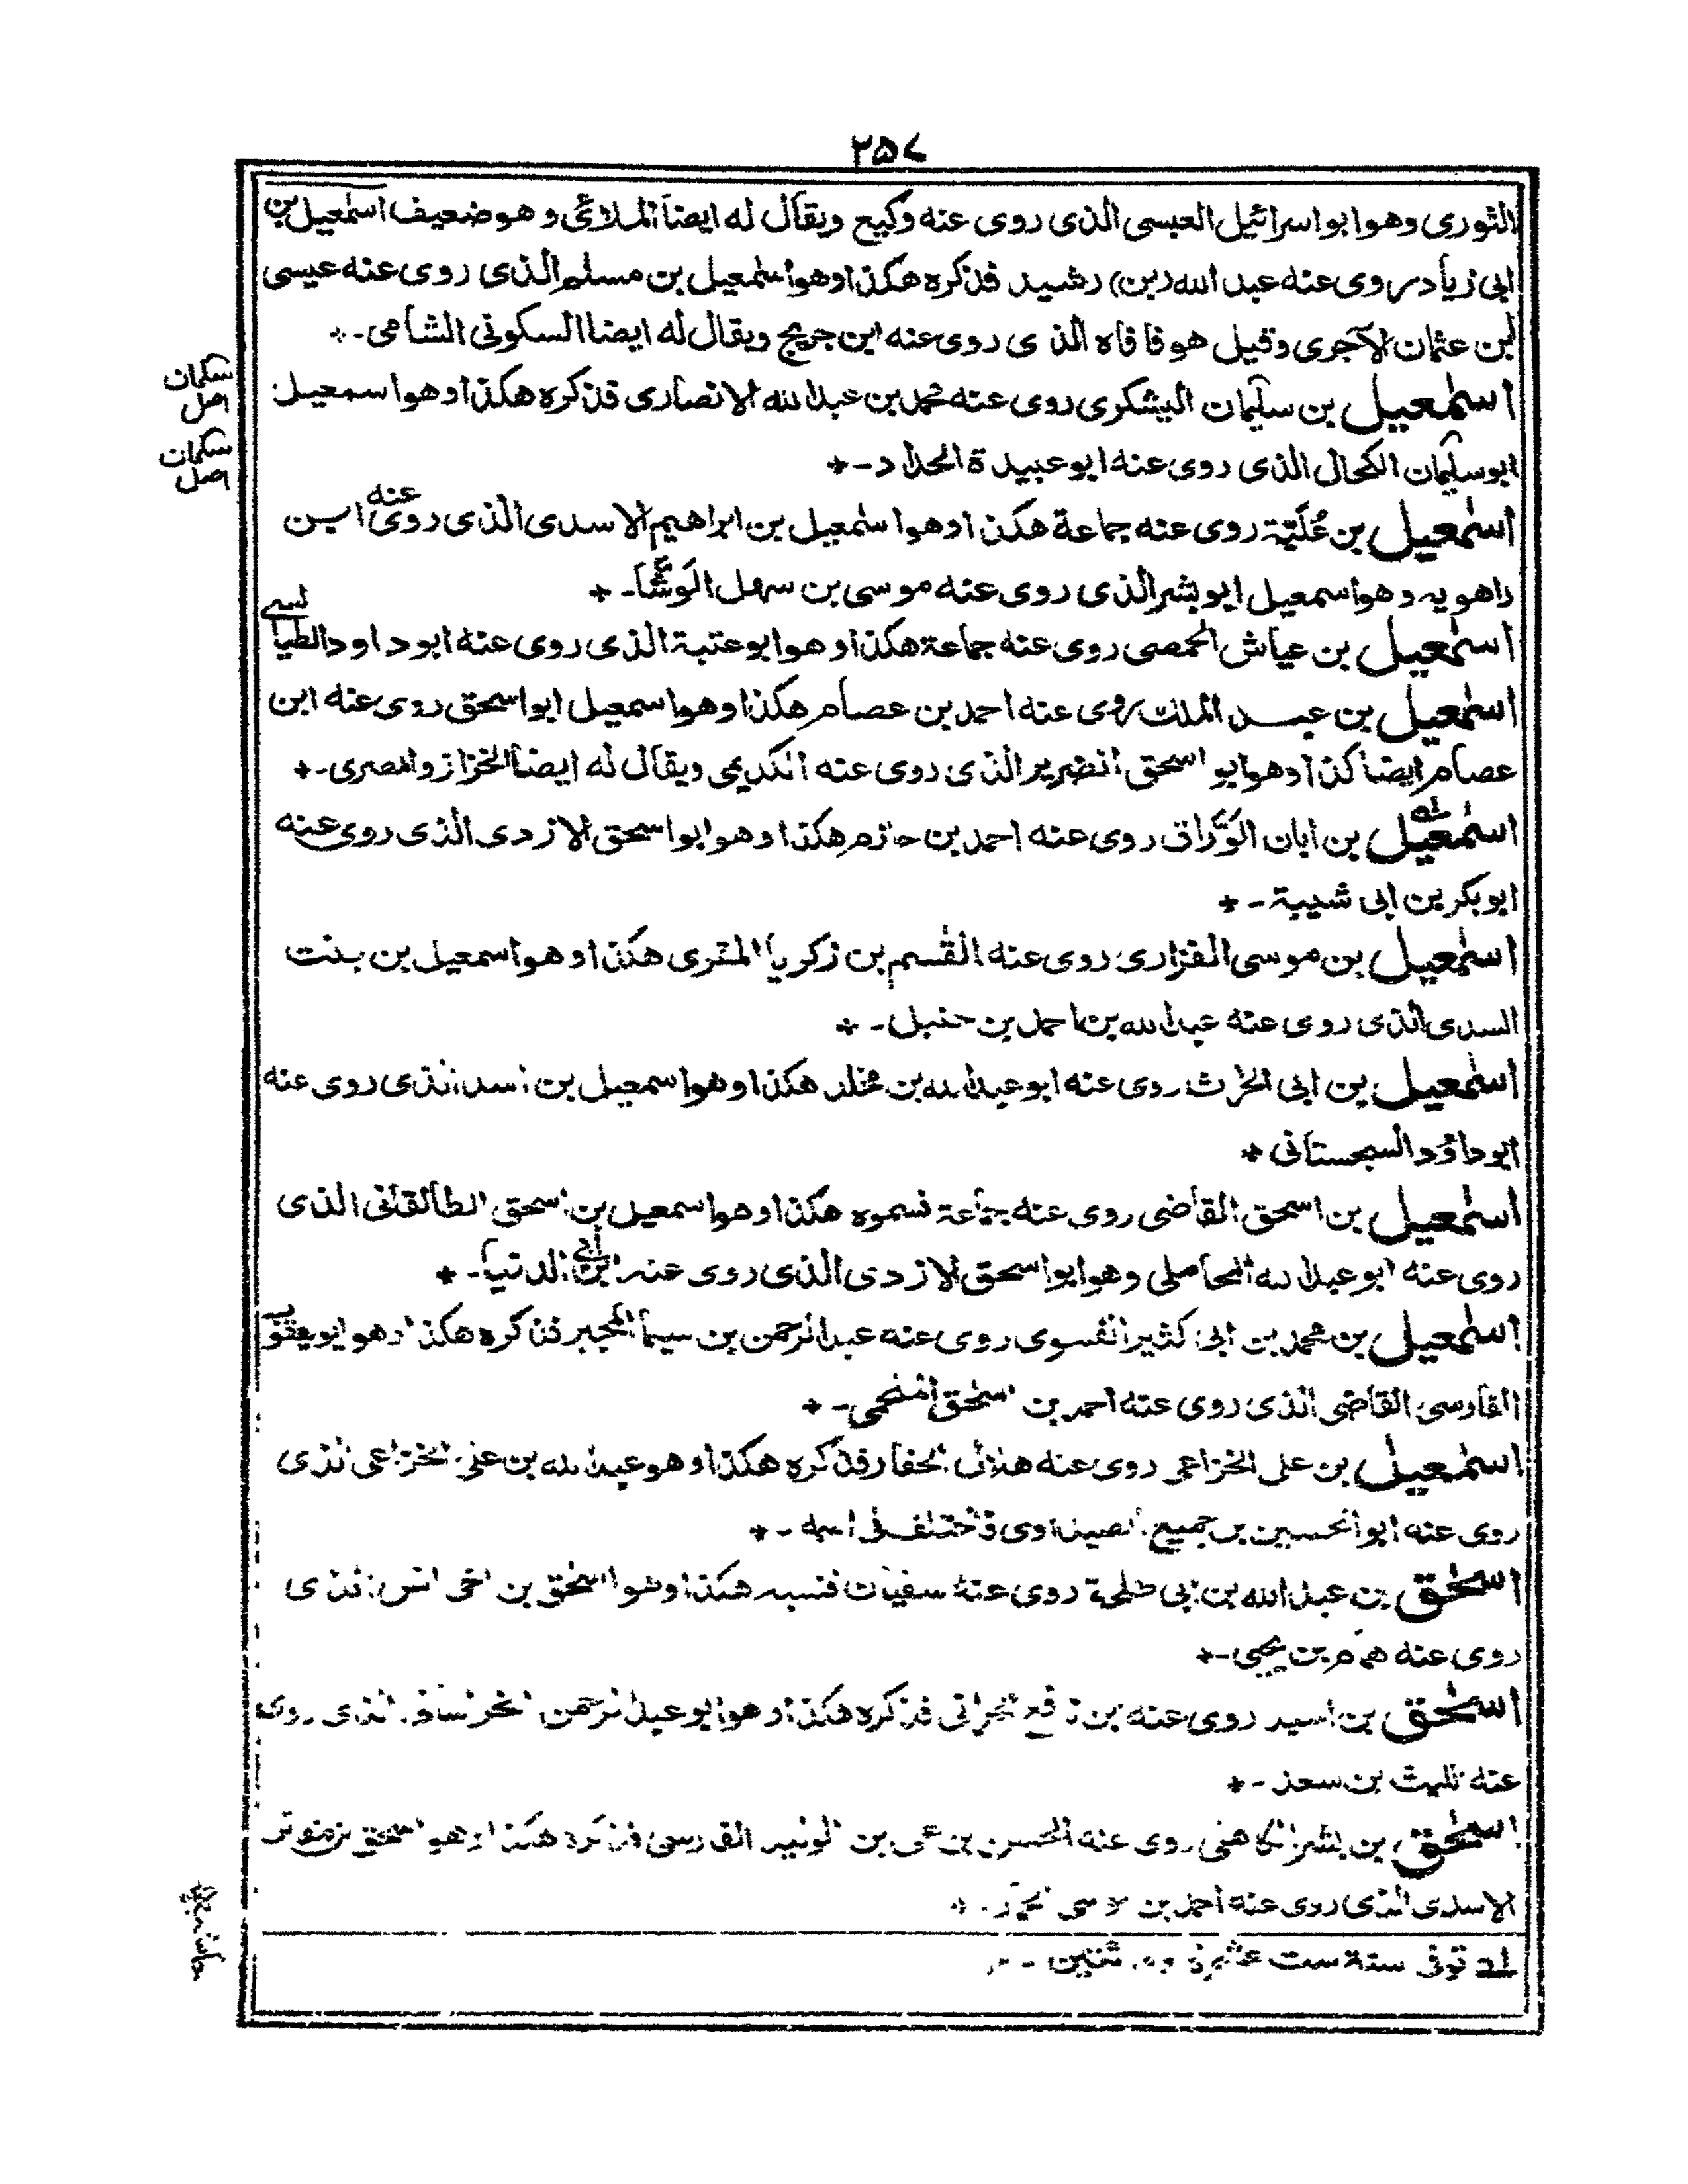 ۲۵۷
الثوری وهوابواسرائیل العبسی الذی روی عنه وکیع ویقال له ایضا الملائی وهوضعیف اسمٰعیل بن
ابی زیاد روی عنه عبد الله (بن) رشید فذکره هکذا وهواسمٰعیل بن مسلم الذی روی عنه عیسی
بن عثمان الآجری وقیل هو فافاه الذی روی عنه ابن جریج ویقال له ایضا السکونی الشامی-*
اسمٰعیل بن سلیمان الیشکری روی عنه محمد بن عبدالله الانصاری فذکره هکذا وهواسمعیل
ابوسلیمان الکحال الذی روی عنه ابوعبیدة الحداد-*
سلمان
اصل
سلمان
اصل
اسمٰعیل بن عُلَیّة روی عنه جماعة هکذا وهواسمٰعیل بن ابراهیم الاسدی الذی روی عنه ابن
راهویه وهواسمعیل ابوبشرالذی روی عنه موسی بن سهل الوشّا-*
اسمٰعیل بن عیاش الحمصی روی عنه جماعة هکذا وهوابوعتبة الذی روی عنه ابوداود الطیالسے
اسمٰعیل بن عبد الملک روی عنه احمد بن عصام هکذا وهواسمعیل ابواسحق روی عنه ابن
عصام ایضا کذا وهوابو اسحق الضریر الذی روی عنه الکدیمی ویقال له ایضا الخزاز والمصری-*
اسمٰعیل بن ابان الوَرّاق روی عنه احمد بن حازم هکذا وهوابواسحق الازدی الذی روی عنه
ابوبکر بن ابی شیبة-*
اسمٰعیل بن موسی الفزاری روی عنه القٰسم بن زکریا المقری هکذا وهواسمعیل بن بنت
السدی الذی روی عنه عبدالله بن احمد بن حنبل-*
اسمٰعیل بن ابی الحٰرث روی عنه ابوعبدالله بن مخلد هکذا وهواسمعیل بن اسد الذی روی عنه
ابوداؤد السجستانی*
اسمٰعیل بن اسحق القاضی روی عنه جماعة فسموه هکذا وهواسمعیل بن اسحق الطالقانی الذی
روی عنه ابوعبدالله المحاملی وهوابواسحق الازدی الذی روی عنه ابن ابی الدنیا-*
اسمٰعیل بن محمد بن ابی کثیر الفسوی روی عنه عبدالرحمن بن سیما المجبر فذکره هکذا وهوابویعقوب
الفارسی القاضی الذی روی عنه احمد بن اسحٰق-*
اسمٰعیل بن علی الخزاعی روی عنه هلال الحفار فذکره هکذا وهوعبدالله بن علی الخزاعی الذی
روی عنه ابوالحسین بن جمیع الصیداوی فاختلف فی اسمه-*
اسحٰق بن عبدالله بن ابی طلحة روی عنه سفیان فنسبه هکذا وهواسحٰق بن اخی انس الذی
روی عنه همام بن یحیی-*
اسحٰق بن اسید روی عنه بن نافع الحرانی فذکره هکذا وهوابوعبدالرحمن الخراسانی الذی روی
عنه اللیث بن سعد-*
اسحٰق بن بشر الکاهلی روی عنه الحسن بن علی بن الولید الفارسی فذکره هکذا وهواسحٰق بن
الاسدی الذی روی عنه احمد بن
لہ توفی سنة ست عشرة و مئتین-